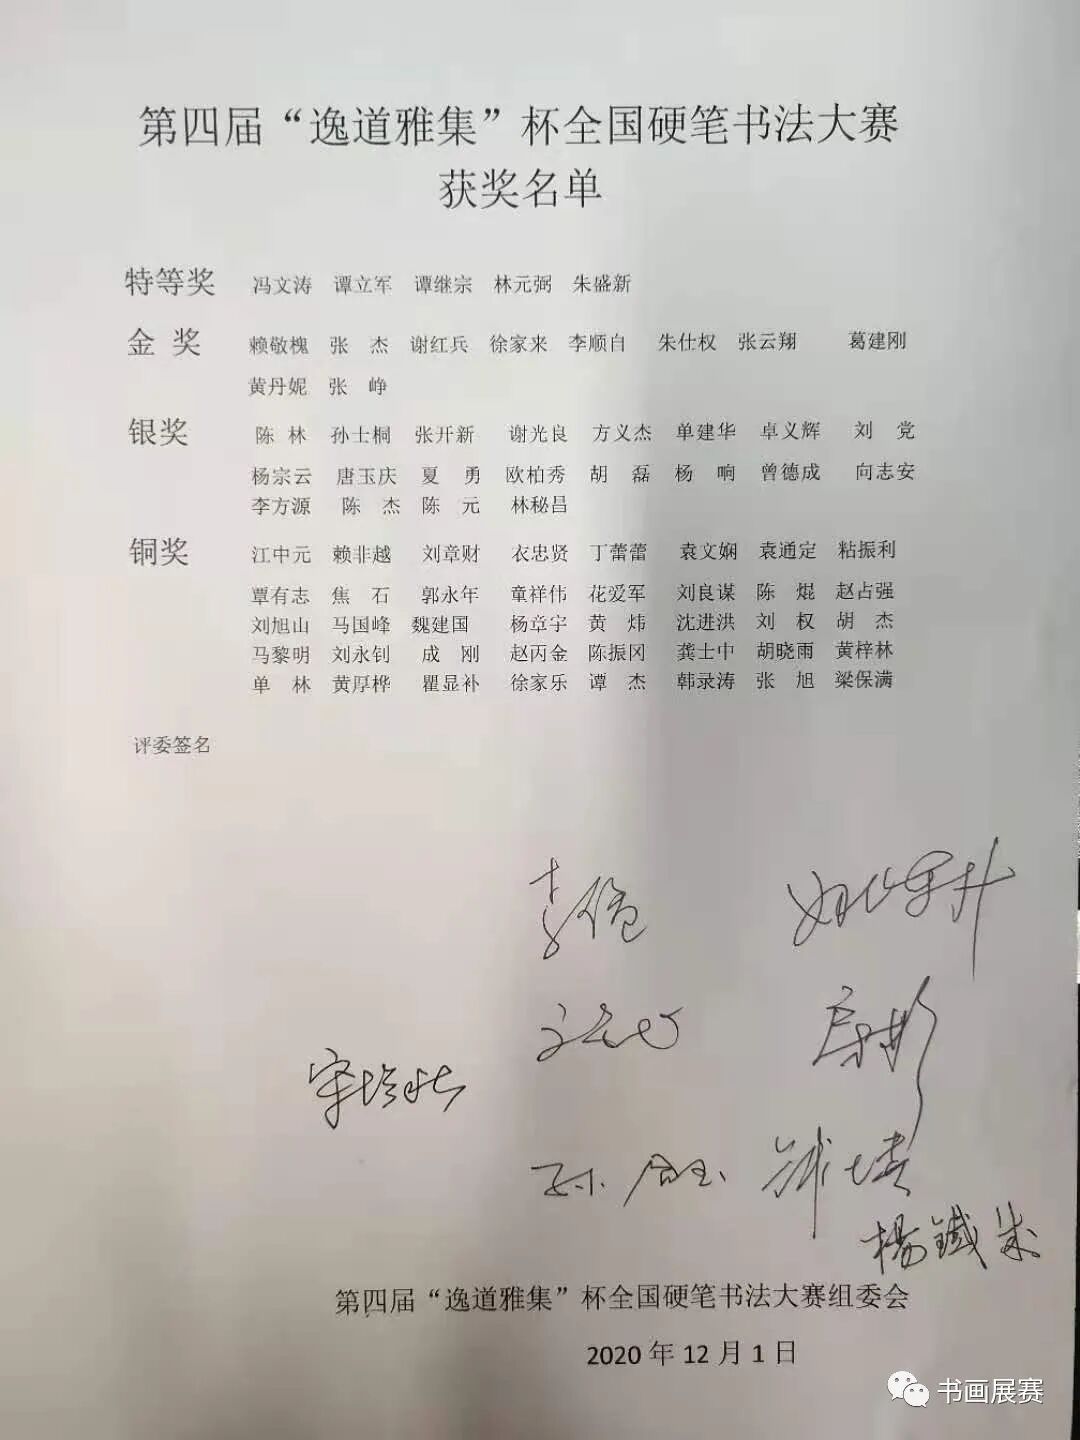 第四届“逸道雅集”杯全国硬笔书法大赛
获奖名单
特等奖 冯文涛 谭立军 谭继宗 林元弼 朱盛新
金 奖 赖敬槐 张 杰 谢红兵 徐家来 李顺自 朱仕权 张云翔 葛建刚
黄丹妮 张 峥
银奖 陈 林 孙士桐 张开新 谢光良 方义杰 单建华 卓义辉 刘 党
杨宗云 唐玉庆 夏 勇 欧柏秀 胡 磊 杨 响 曾德成 向志安
李方源 陈 杰 陈 元 林秘昌
铜奖 江中元 赖非越 刘章财 衣忠贤 丁蕾蕾 袁文娴 袁通定 粘振利
覃有志 焦 石 郭永年 童祥伟 花爱军 刘良谋 陈 焜 赵占强
刘旭山 马国峰 魏建国 杨章宇 黄 炜 沈进洪 刘 权 胡 杰
马黎明 刘永钊 成 刚 赵丙金 陈振冈 龚士中 胡晓雨 黄梓林
单 林 黄厚桦 瞿显补 徐家乐 谭 杰 韩录涛 张 旭 梁保满
评委签名
杨鐵成
第四届“逸道雅集”杯全国硬笔书法大赛组委会
2020 年 12 月 1 日
书画展赛